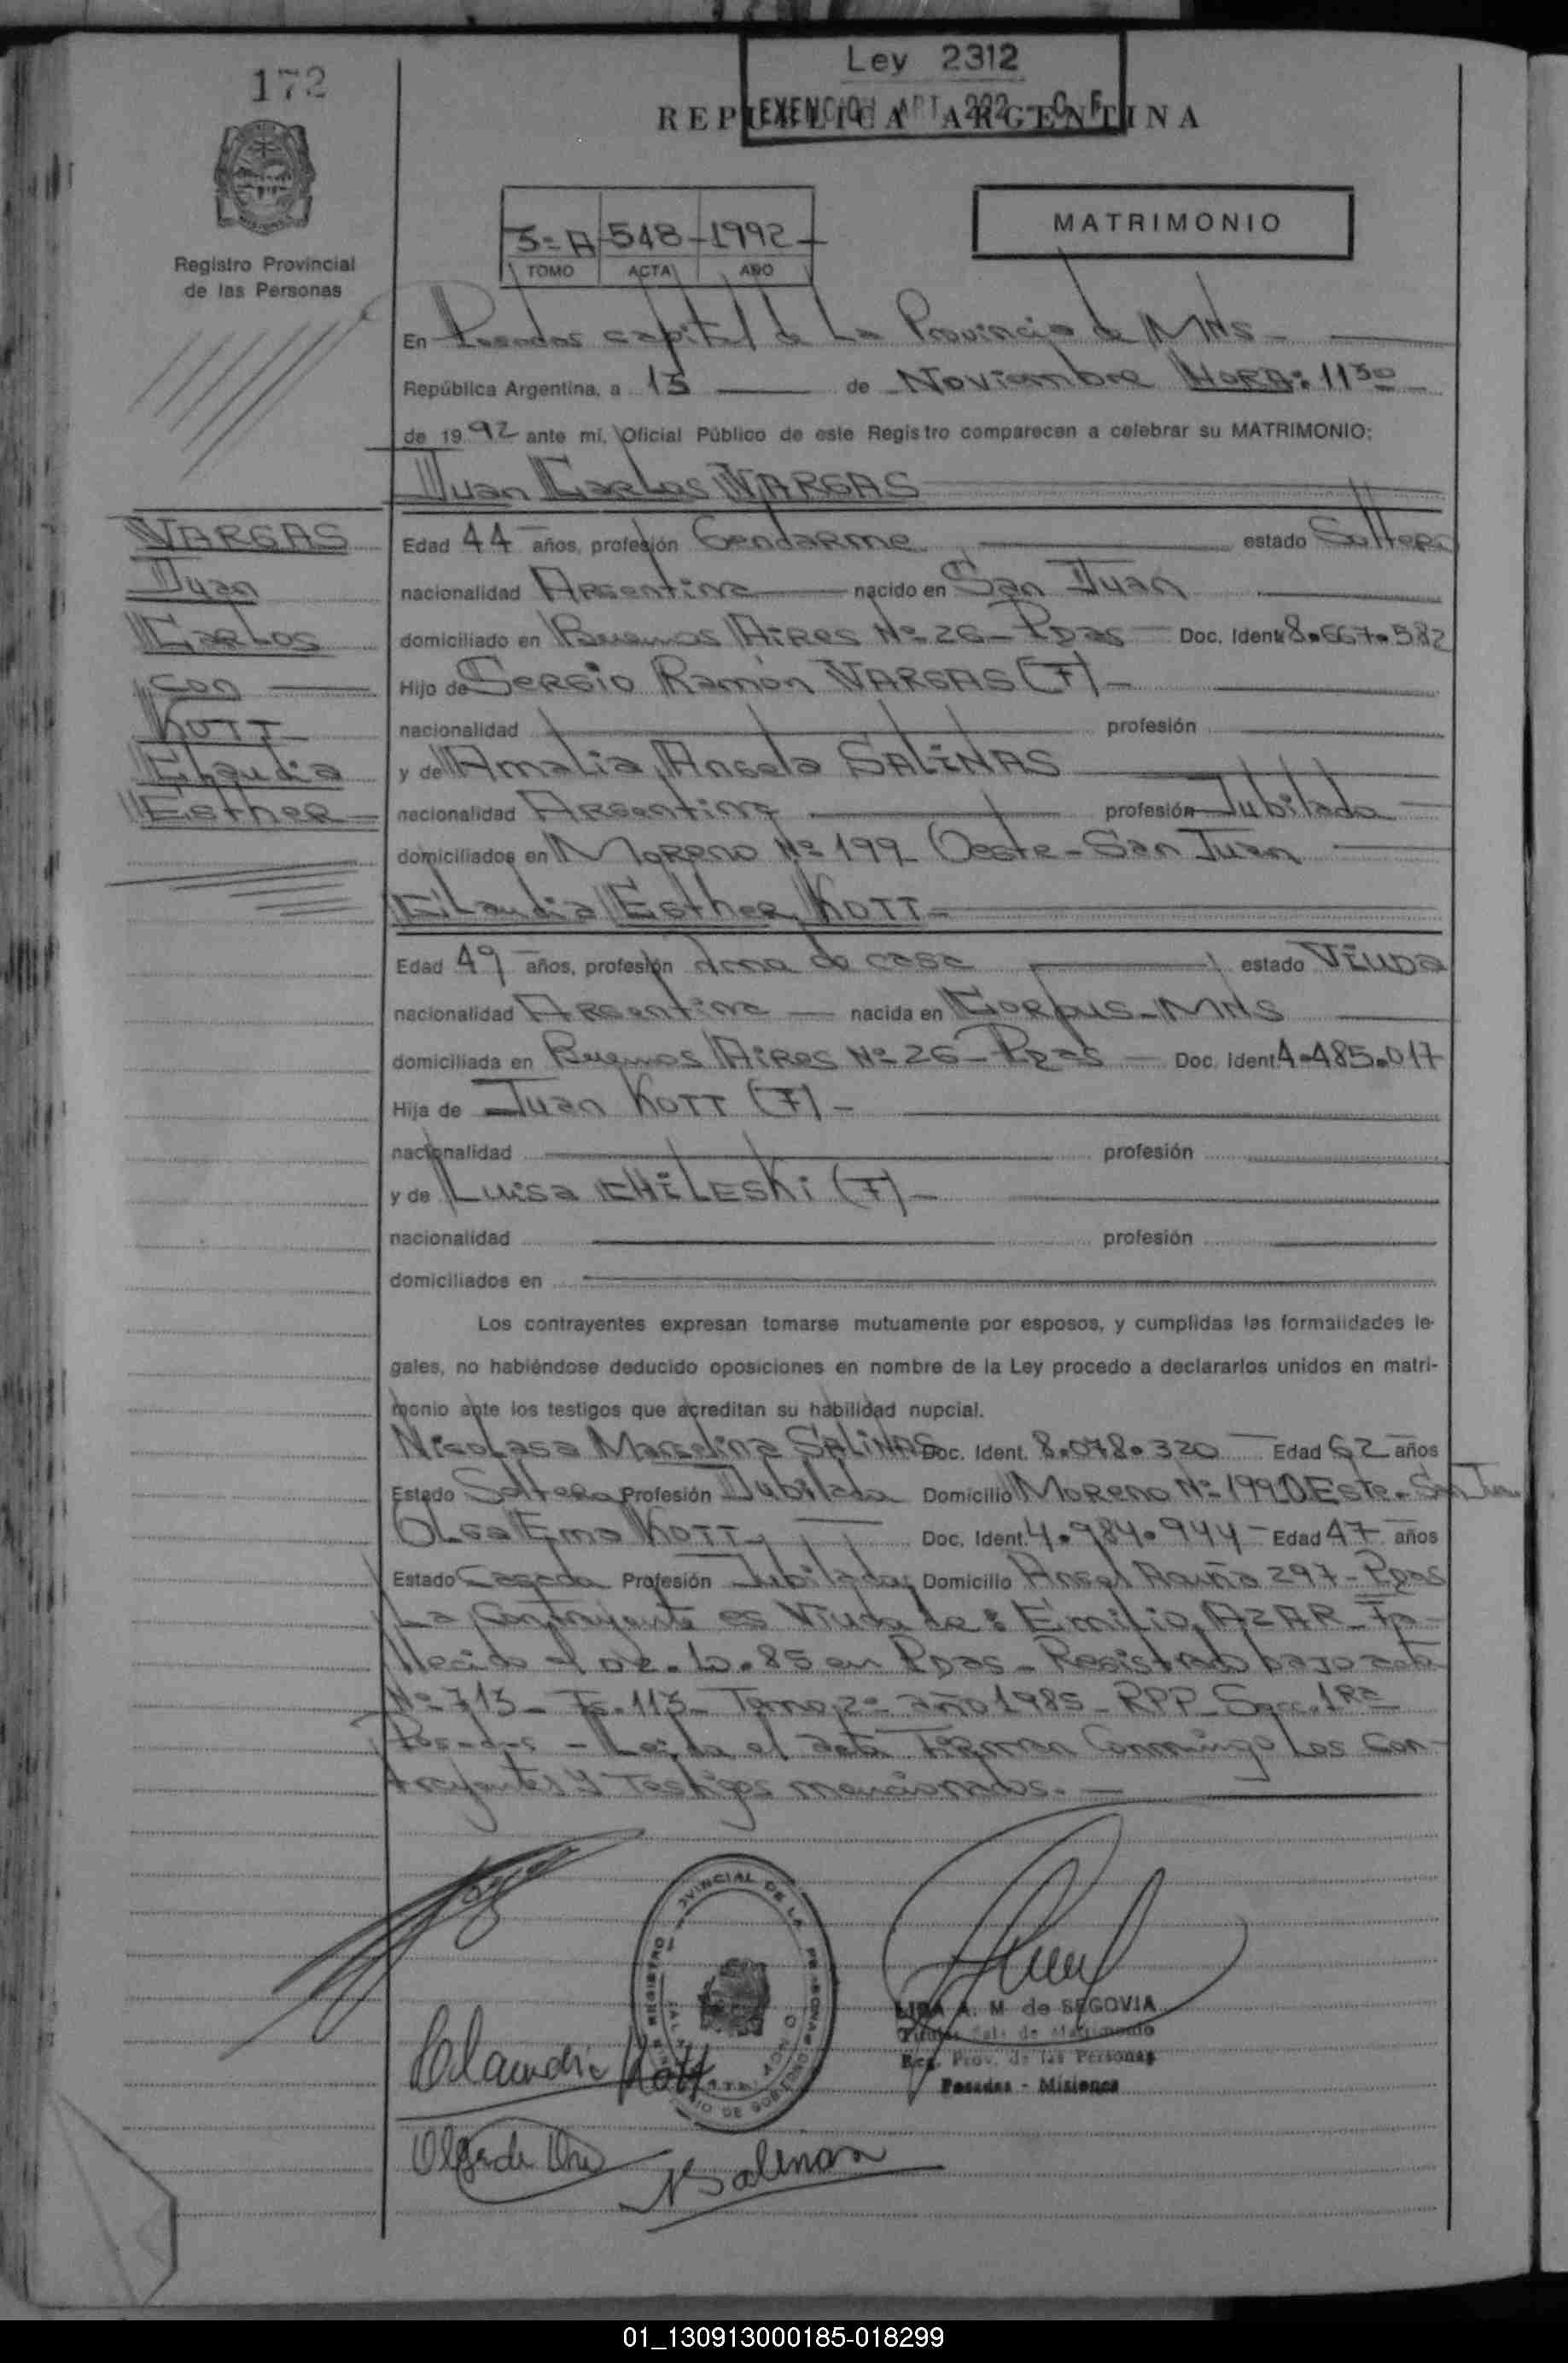 172
Ley 2312
EXENCION ART. 292 - C. F.
REPUBLICA ARGENTINA
Registro Provincial
de las Personas
3º A - 548 - 1992 -
TOMO ACTA AÑO
MATRIMONIO
En Posadas capital de La Provincia de MNS -
República Argentina, a 13 de Noviembre HORA: 11 30
de 1992 ante mí, Oficial Público de este Registro comparecen a celebrar su MATRIMONIO:
Juan Carlos VARGAS
VARGAS
Juan
Carlos
con
KOTT
Claudia
Esther
Edad 44 años, profesión Gendarme estado Soltero
nacionalidad Argentina nacido en San Juan
domiciliado en Buenos Aires Nº 26 - Pdas - Doc. Ident. 8.667.582
Hijo de Sergio Ramón VARGAS (F) -
nacionalidad profesión
y de Amalia Angela SALINAS
nacionalidad Argentina profesión Jubilada
domiciliados en Moreno Nº 199 - Oeste - San Juan
Claudia Esther KOTT -
Edad 49 años, profesión ama de casa estado Viuda
nacionalidad Argentina - nacida en Corpus - MNS
domiciliada en Buenos Aires Nº 26 - Pdas - Doc. Ident. 4.485.017
Hija de Juan KOTT (F) -
nacionalidad profesión
y de Luisa CHILESKI (F) -
nacionalidad profesión
domiciliados en
Los contrayentes expresan tomarse mutuamente por esposos, y cumplidas las formalidades le-
gales, no habiéndose deducido oposiciones en nombre de la Ley procedo a declararlos unidos en matri-
monio ante los testigos que acreditan su habilidad nupcial.
Nicolasa Marcelina SALINAS Doc. Ident. 8.078.320 - Edad 62 años
Estado Soltera Profesión Jubilada Domicilio Moreno Nº 199 OEste - San Juan
Olga Ema KOTT - Doc. Ident. 4.984.944 - Edad 47 años
Estado Casada Profesión Jubilada Domicilio Angel Acuña 297 - Pdas
La Contrayente es Viuda de: Emilio AZAR - Fa-
llecido el 02.10.85 en Pdas - Registrado bajo acta
Nº 713 - Fo. 113 - Tomo 2º año 1985 - RPP - Secc. 1Ra
Posadas - Leida el acta Firman Conmigo Los Con-
trayentes y Testigos mencionados. -
Claudia Kott
LIRA A. M. de SEGOVIA
Titular Sala de Matrimonio
Reg. Prov. de las Personas
Posadas - Misiones
Olga de
NSalinas
01_130913000185-018299